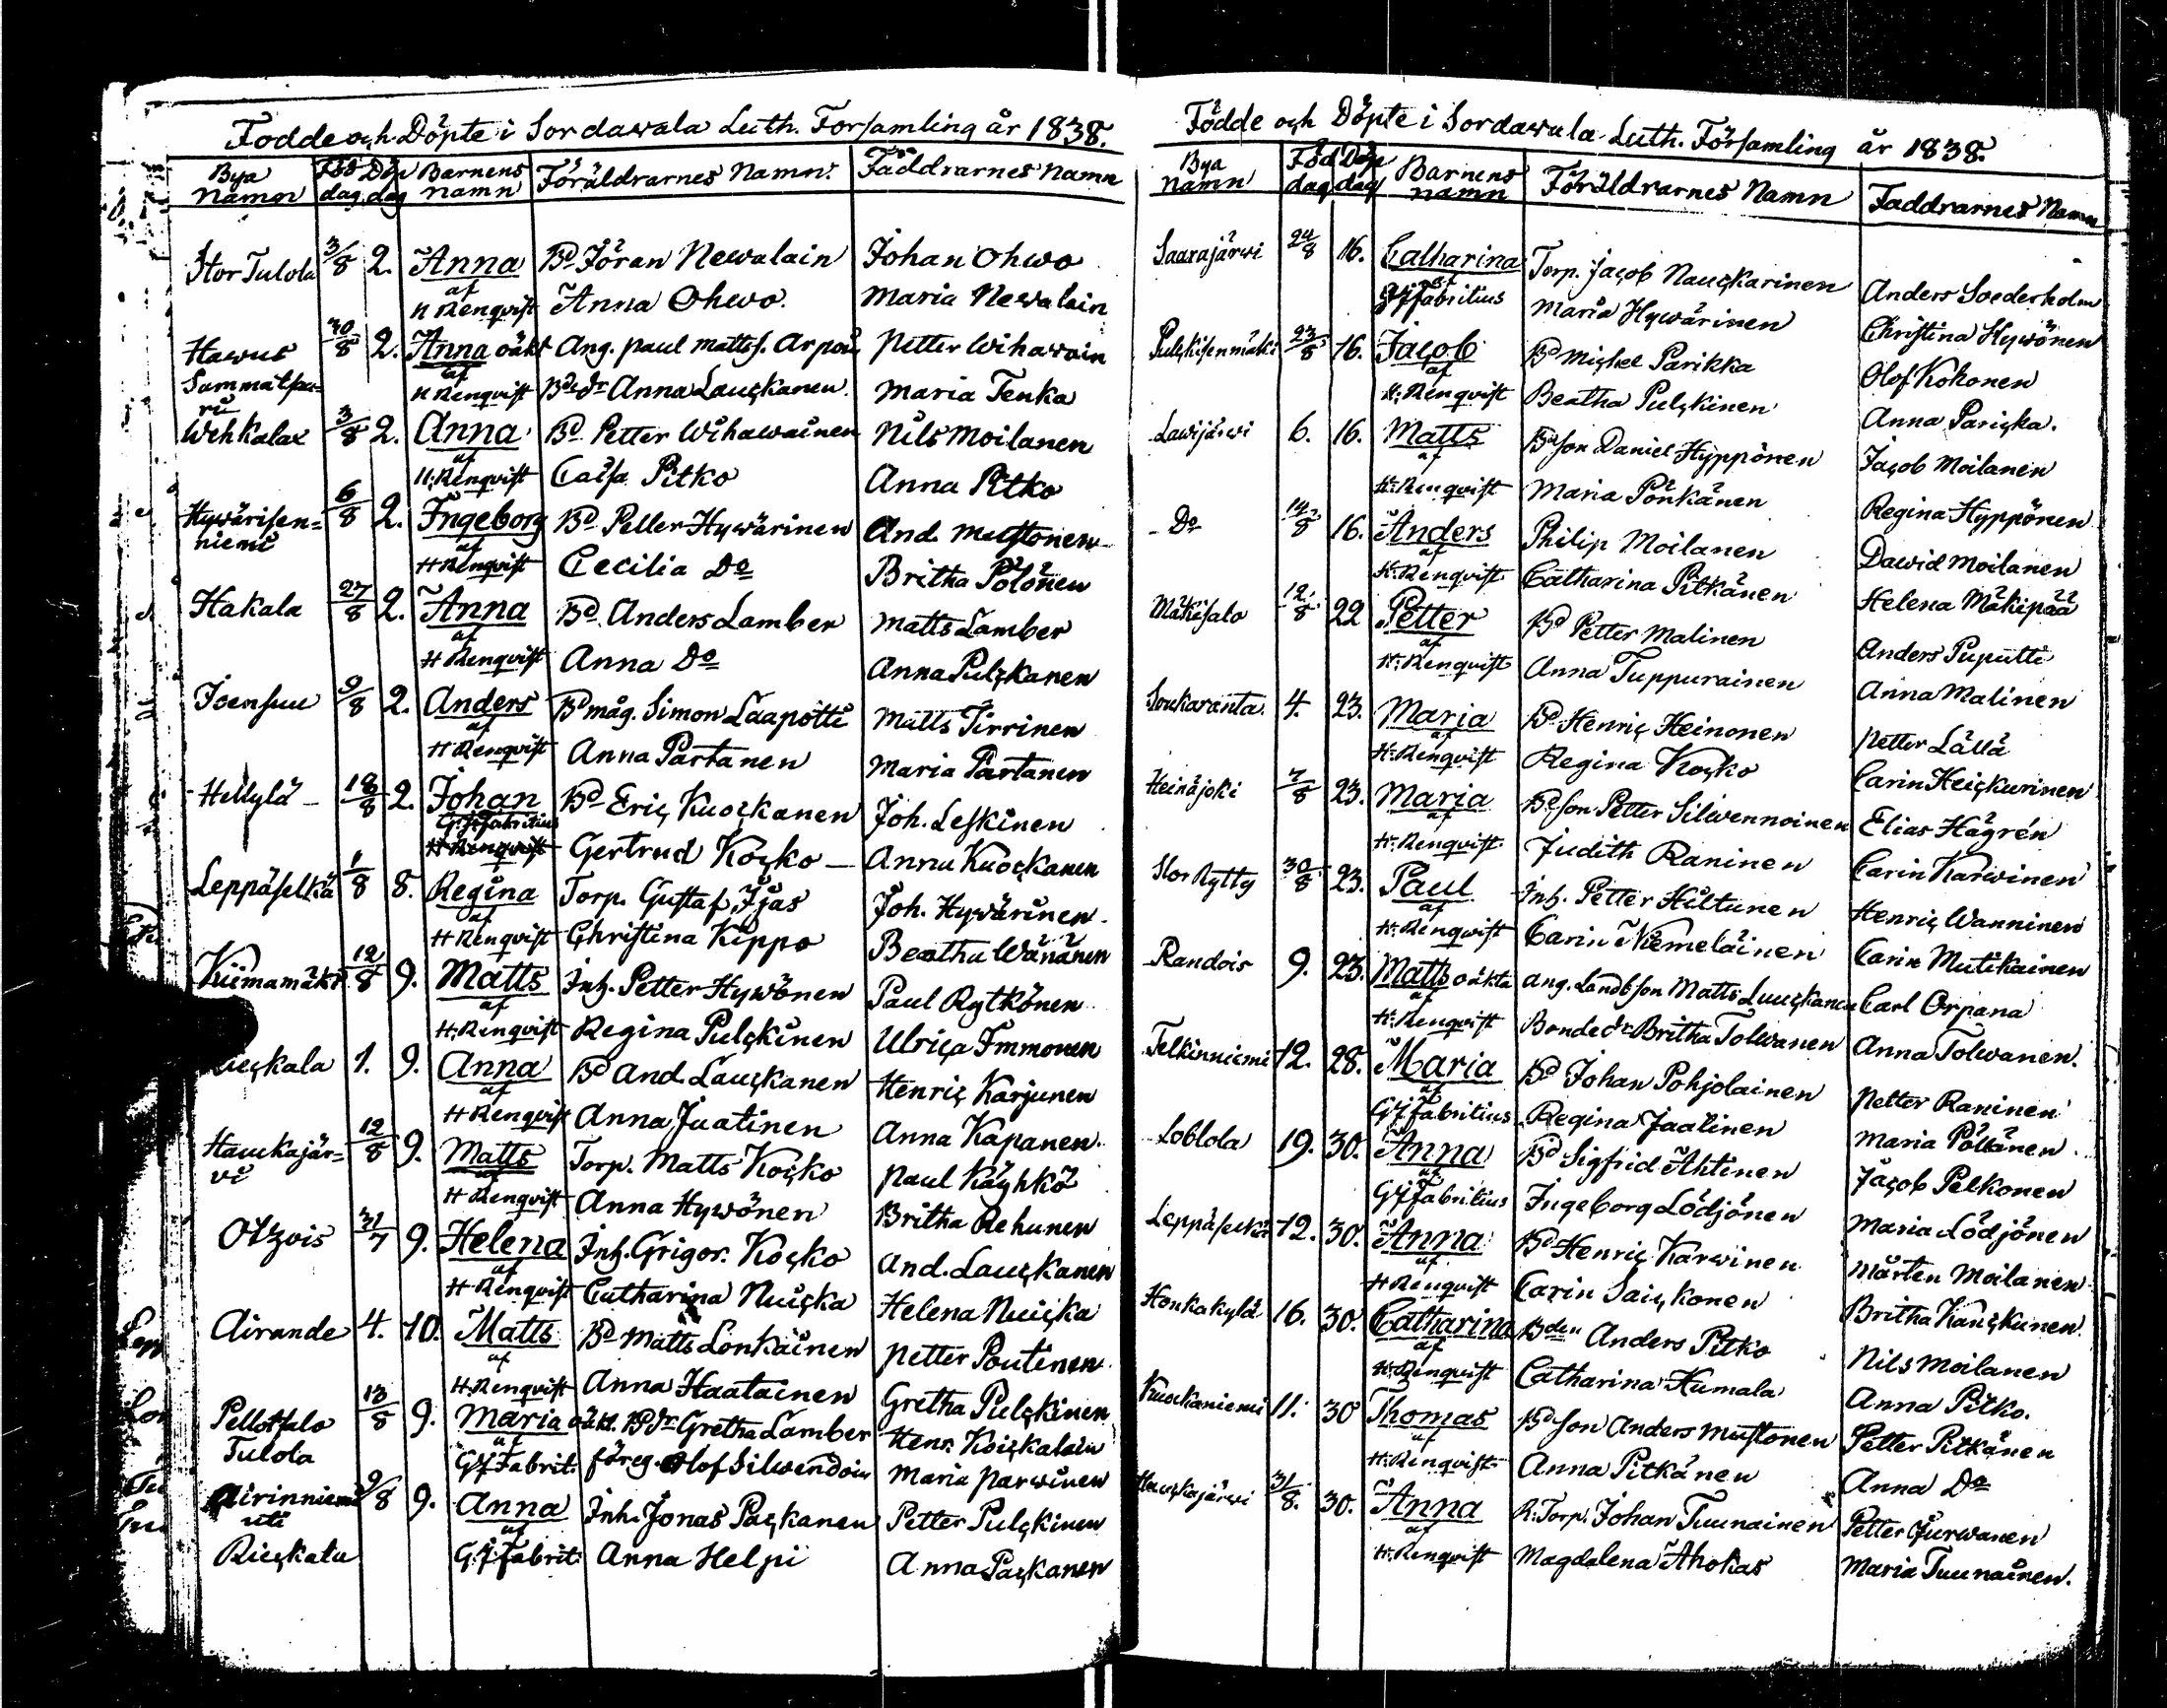 Fodde och Döpte i Sordawala Luth. Forsamling år 1838.
Bya namn Föd dag Döp dag Barnens namn Föräldrarnes Namn. Faddrarnes Namn
Stor Tulola 3/8 2. Anna Bd Jöran Newalain Johan Ohwo
af H Renqvist Anna Ohwo. Maria Newalain
Hawus 30/8 2. Anna oäkt Ang. paul mattss. Arpoi Petter Wihawain
Sammatsu= af H Renqvist Bdedr Anna Lauçkanen. Maria Tenka
ri
Wehkalax 3/8 2. Anna Bd Petter Wihawainen Nils Moilanen
af H. Renqvist Caisa Pitko Anna Pitko
Hywärisen= 6/8 2. Ingeborg Bd Petter Hywärinen And. Mustonen
niemi af H Renqvist Cecilia Do Britha Polönen
Hakala 27/8 2. Anna Bd Anders Lamber Matts Lamber
af H Renqvist Anna Do Anna Pulçkanen
Joensuu 9/8 2. Anders Bd måg. Simon Laapotti Matts Tirrinen
af H Renqvist Anna Partanen Maria Partanen
Hellylä 18/8 2. Johan Bd Eriç Kuoçkanen Joh. Leskinen
G. J. Fabritius H Renqvist Gertrud Koçko Anna Kuoçkanen
Leppäselkä 1/8 8. Regina Torp. Gustaf Ijäs Joh. Hywärinen
af H Renqvist Christina Kippo Beatha Wänänen
Kiimamäki 12/8 9. Matts Inh. Petter Hywönen Paul Rytkönen
af H. Renqvist Regina Pulçkinen Ulriça Immonen
ieçkala 1. 9. Anna Bd And. Lauçkanen Henriç Karjunen
af H Renqvist Anna Juatinen Anna Kapanen.
Hauckajär= 12/8 9. Matts Torp. Matts Koçko Paul Käyhkö
vi af H Renqvist Anna Hywönen Britha Rehunen
Otzois 31/7 9. Helena Inh. Grigor. Koçko And. Lauçkanen
af H Renqvist Catharina Nuiçka Helena Nuiçka
Airande 4. 10. Matts Bd Matts Lonkainen Petter Poutinen
af H. Renqvist Anna Haatainen Gretha Pulçkinen
Pellotsalo 13/8 9. Maria oäkt. Bdr Gretha Lamber Henr. Koiçkalain
Tulola af G J Fabrit. föreg. Olof Silwendoin Maria Parwinen
Airinniemi 9/8 9. Anna Inh. Jonas Paçkanen Petter Pulçkinen
uti
Rieçkala af G. J. Fabrit. Anna Helpi Anna Paçkanen
Födde och Döpte i Sordawala Luth. Församling år 1838.
Bya namn Föd dag Döp dag Barnens namn Föräldrarnes Namn Faddrarnes Namn
Saarajärwi 24/8 16. Catharina Torp. Jaçob Nauçkarinen Anders Soederholm
af G J Fabritius Maria Hywärinen Christina Hywönen
Pulçkisenmäki 23/8 16. Jaçob Bd Miçhel Parikka Olof Kokonen
af H. Renqvist Beatha Pulçkinen Anna Pariçka.
Lawijärwi 6. 16. Matts Bdson Daniel Hyppönen Jaçob Moilanen
af H. Renqvist Maria Pönkänen Regina Hyppönen
Do 14/8 16. Anders Philip Moilanen Dawid Moilanen
af H. Renqvist Catharina Pitkänen Helena Mäkipää
Mäkisalo 12/8 22 Petter Bd Petter Malinen Anders Puputti
af H. Renqvist Anna Tuppurainen Anna Malinen
Soukaranta. 4. 23. Maria Bd Henriç Heinonen Petter Lällä
af H. Renqvist Regina Koçko Carin Heiçkurinen
Heinäjoki 7/8 23. Maria Bdson Petter Silwennoinen Elias Hägrén
af H. Renqvist Judith Raninen Carin Karwinen
Stor Rytty 30/8 23. Paul Inh. Petter Hiltunen Henriç Wanninen
af H. Renqvist Carin Niemeläinen Carin Mutikainen
Randois 9. 23. Matts oäkta ang. Landbson Matts Lauçkanen Carl Orpana
af H. Renqvist Bondedr Britha Tolwanen Anna Tolwanen.
Telkinniemi 12. 28. Maria Bd Johan Pohjolainen Petter Raninen
af G J Fabritius Regina Jaatinen Maria Pölkänen
Loblola 19. 30. Anna Bd Sigfrid Ahtinen Jaçob Pelkonen
af G J Fabritius Ingeborg Lödjönen Maria Lödjönen
Leppäselkä 12. 30. Anna Bd Henriç Karwinen Mårten Moilanen
af H Renqvist Carin Saiçkonen Britha Kauçkunen.
Honkakylä 16. 30. Catharina Bden Anders Pitko Nils Moilanen
af H. Renqvist Catharina Humala Anna Pitko.
Kuockaniemi 11. 30 Thomas Bdson Anders Mustonen Petter Pitkänen
af H. Renqvist Anna Pitkänen Anna Do
Hauçkajärwi 31/8. 30. Anna R. Torp. Johan Tuunainen Petter Jurwanen
af H. Renqvist Magdalena Ahokas Maria Tuunainen.